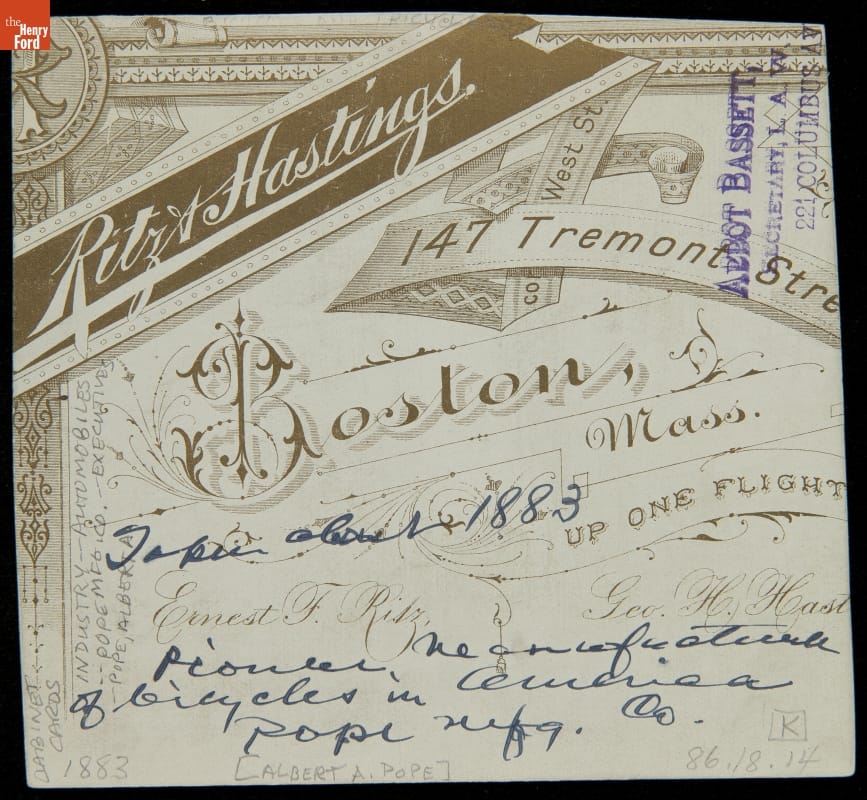 the
Henry
Ford
Ritz & Hastings.
West St.
147 Tremont Stre
COR
ABBOT BASSETT,
SECRETARY, L. A. W.
221 COLUMBUS AV
Boston,
Mass.
UP ONE FLIGHT
Taken about 1883
Ernest F. Ritz,
Geo. H. Hast
Pioneer Manufacturer
of bicycles in America
Pope Mfg. Co.
INDUSTRY - AUTOMOBILES
-- POPE MFG. CO. - EXECUTIVES
- POPE, ALBERT A.
CABINET
CARDS
1883
[ALBERT A. POPE]
K
86.18.14